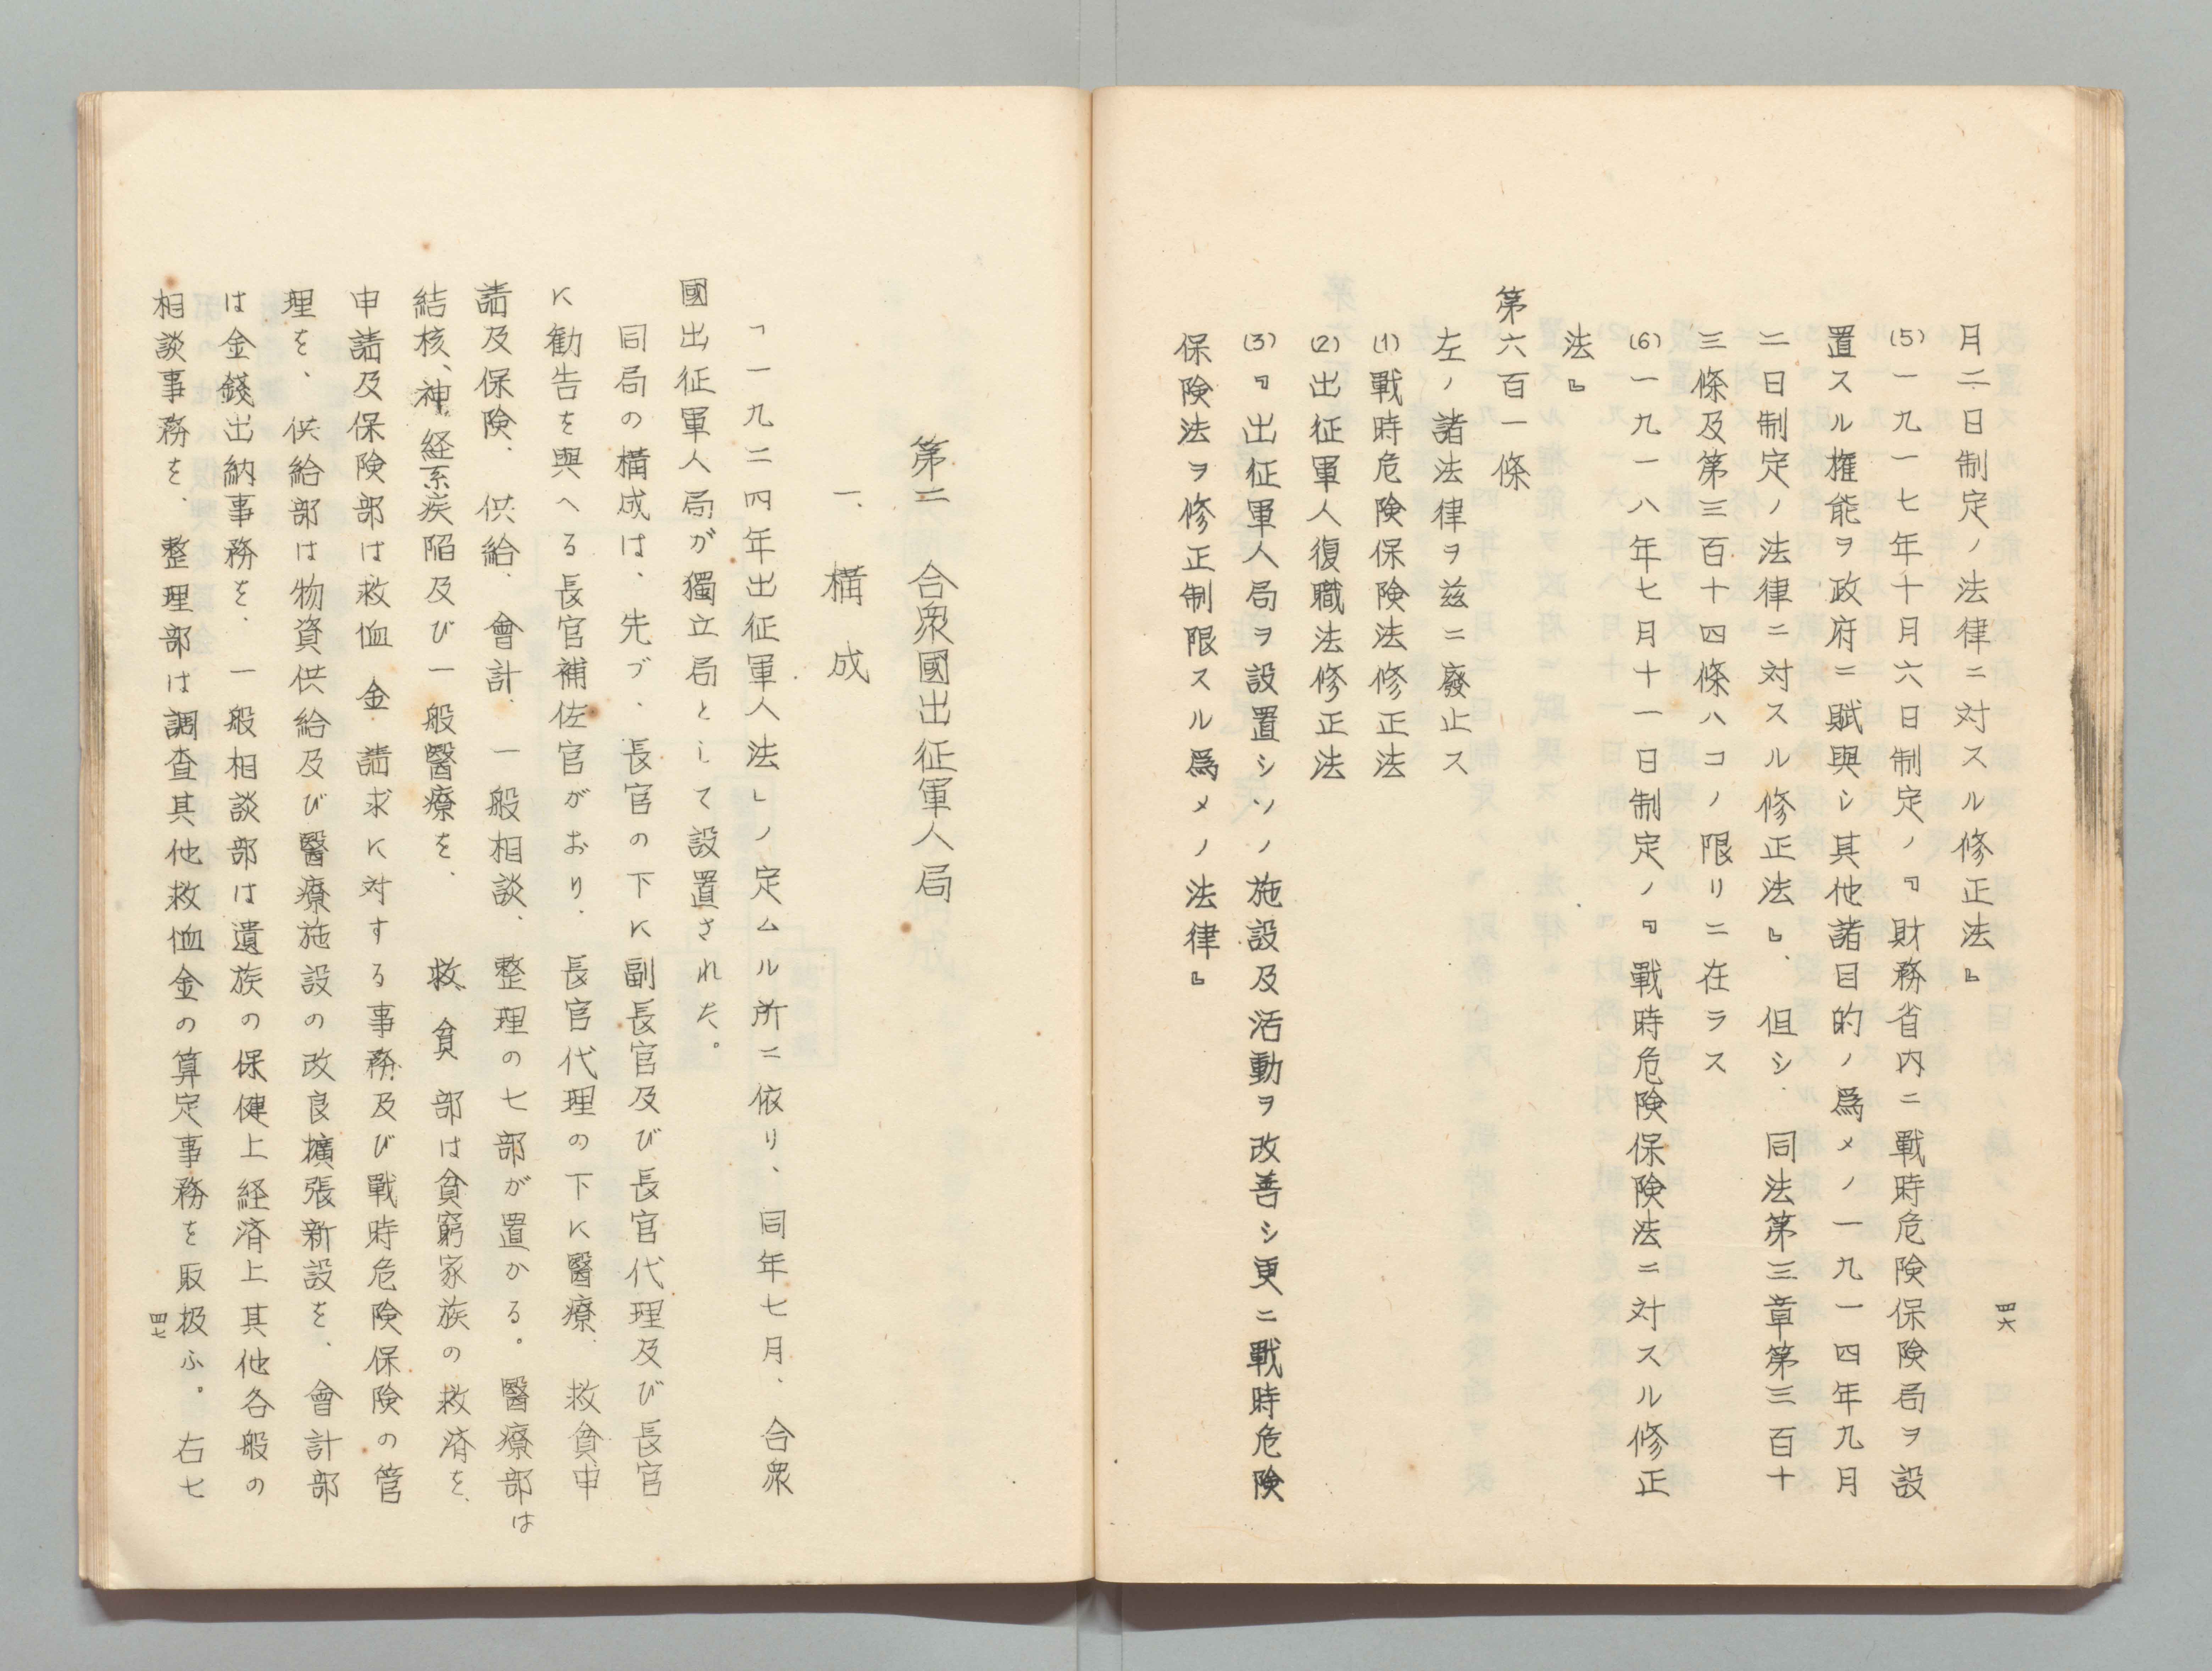 月二日制定ノ法律ニ対スル修正法』
(5)一九一七年十月六日制定ノ『財務省内ニ戰時危険保険局ヲ設
置スル権能ヲ政府ニ賦與シ其他諸目的ノ爲メノ一九一四年九月
二日制定ノ法律ニ対スル修正法』、但シ、同法第三章第三百十
三條及第三百十四條ハコノ限リニ在ラス
(6)一九一八年七月十一日制定ノ『戰時危険保険法ニ対スル修正
法』
第六百一條
左ノ諸法律ヲ茲ニ廢止ス
(1)戰時危険保険法修正法
(2)出征軍人復職法修正法
(3)『出征軍人局ヲ設置シソノ施設及活動ヲ改善シ更ニ戰時危険
保険法ヲ修正制限スル爲メノ法律』
四六
第二 合衆國出征軍人局
一、構成
「一九二四年出征軍人法」ノ定ムル所ニ依リ、同年七月、合衆
國出征軍人局が獨立局として設置された。
同局の構成は、先づ、長官の下に副長官及び長官代理及び長官
に勧告を與へる長官補佐官がおり、長官代理の下に醫療、救貧申
請及保険、供給、會計、一般相談、整理の七部が置かる。醫療部は
結核、神経系疾陥及び一般醫療を、救貧部は貧窮家族の救済を、
申請及保険部は救恤金請求に対する事務及び戰時危険保険の管
理を、供給部は物資供給及び醫療施設の改良擴張新設を、會計部
は金錢出納事務を、一般相談部は遺族の保健上経済上其他各般の
相談事務を、整理部は調査其他救恤金の算定事務を取扱ふ。右七
四七